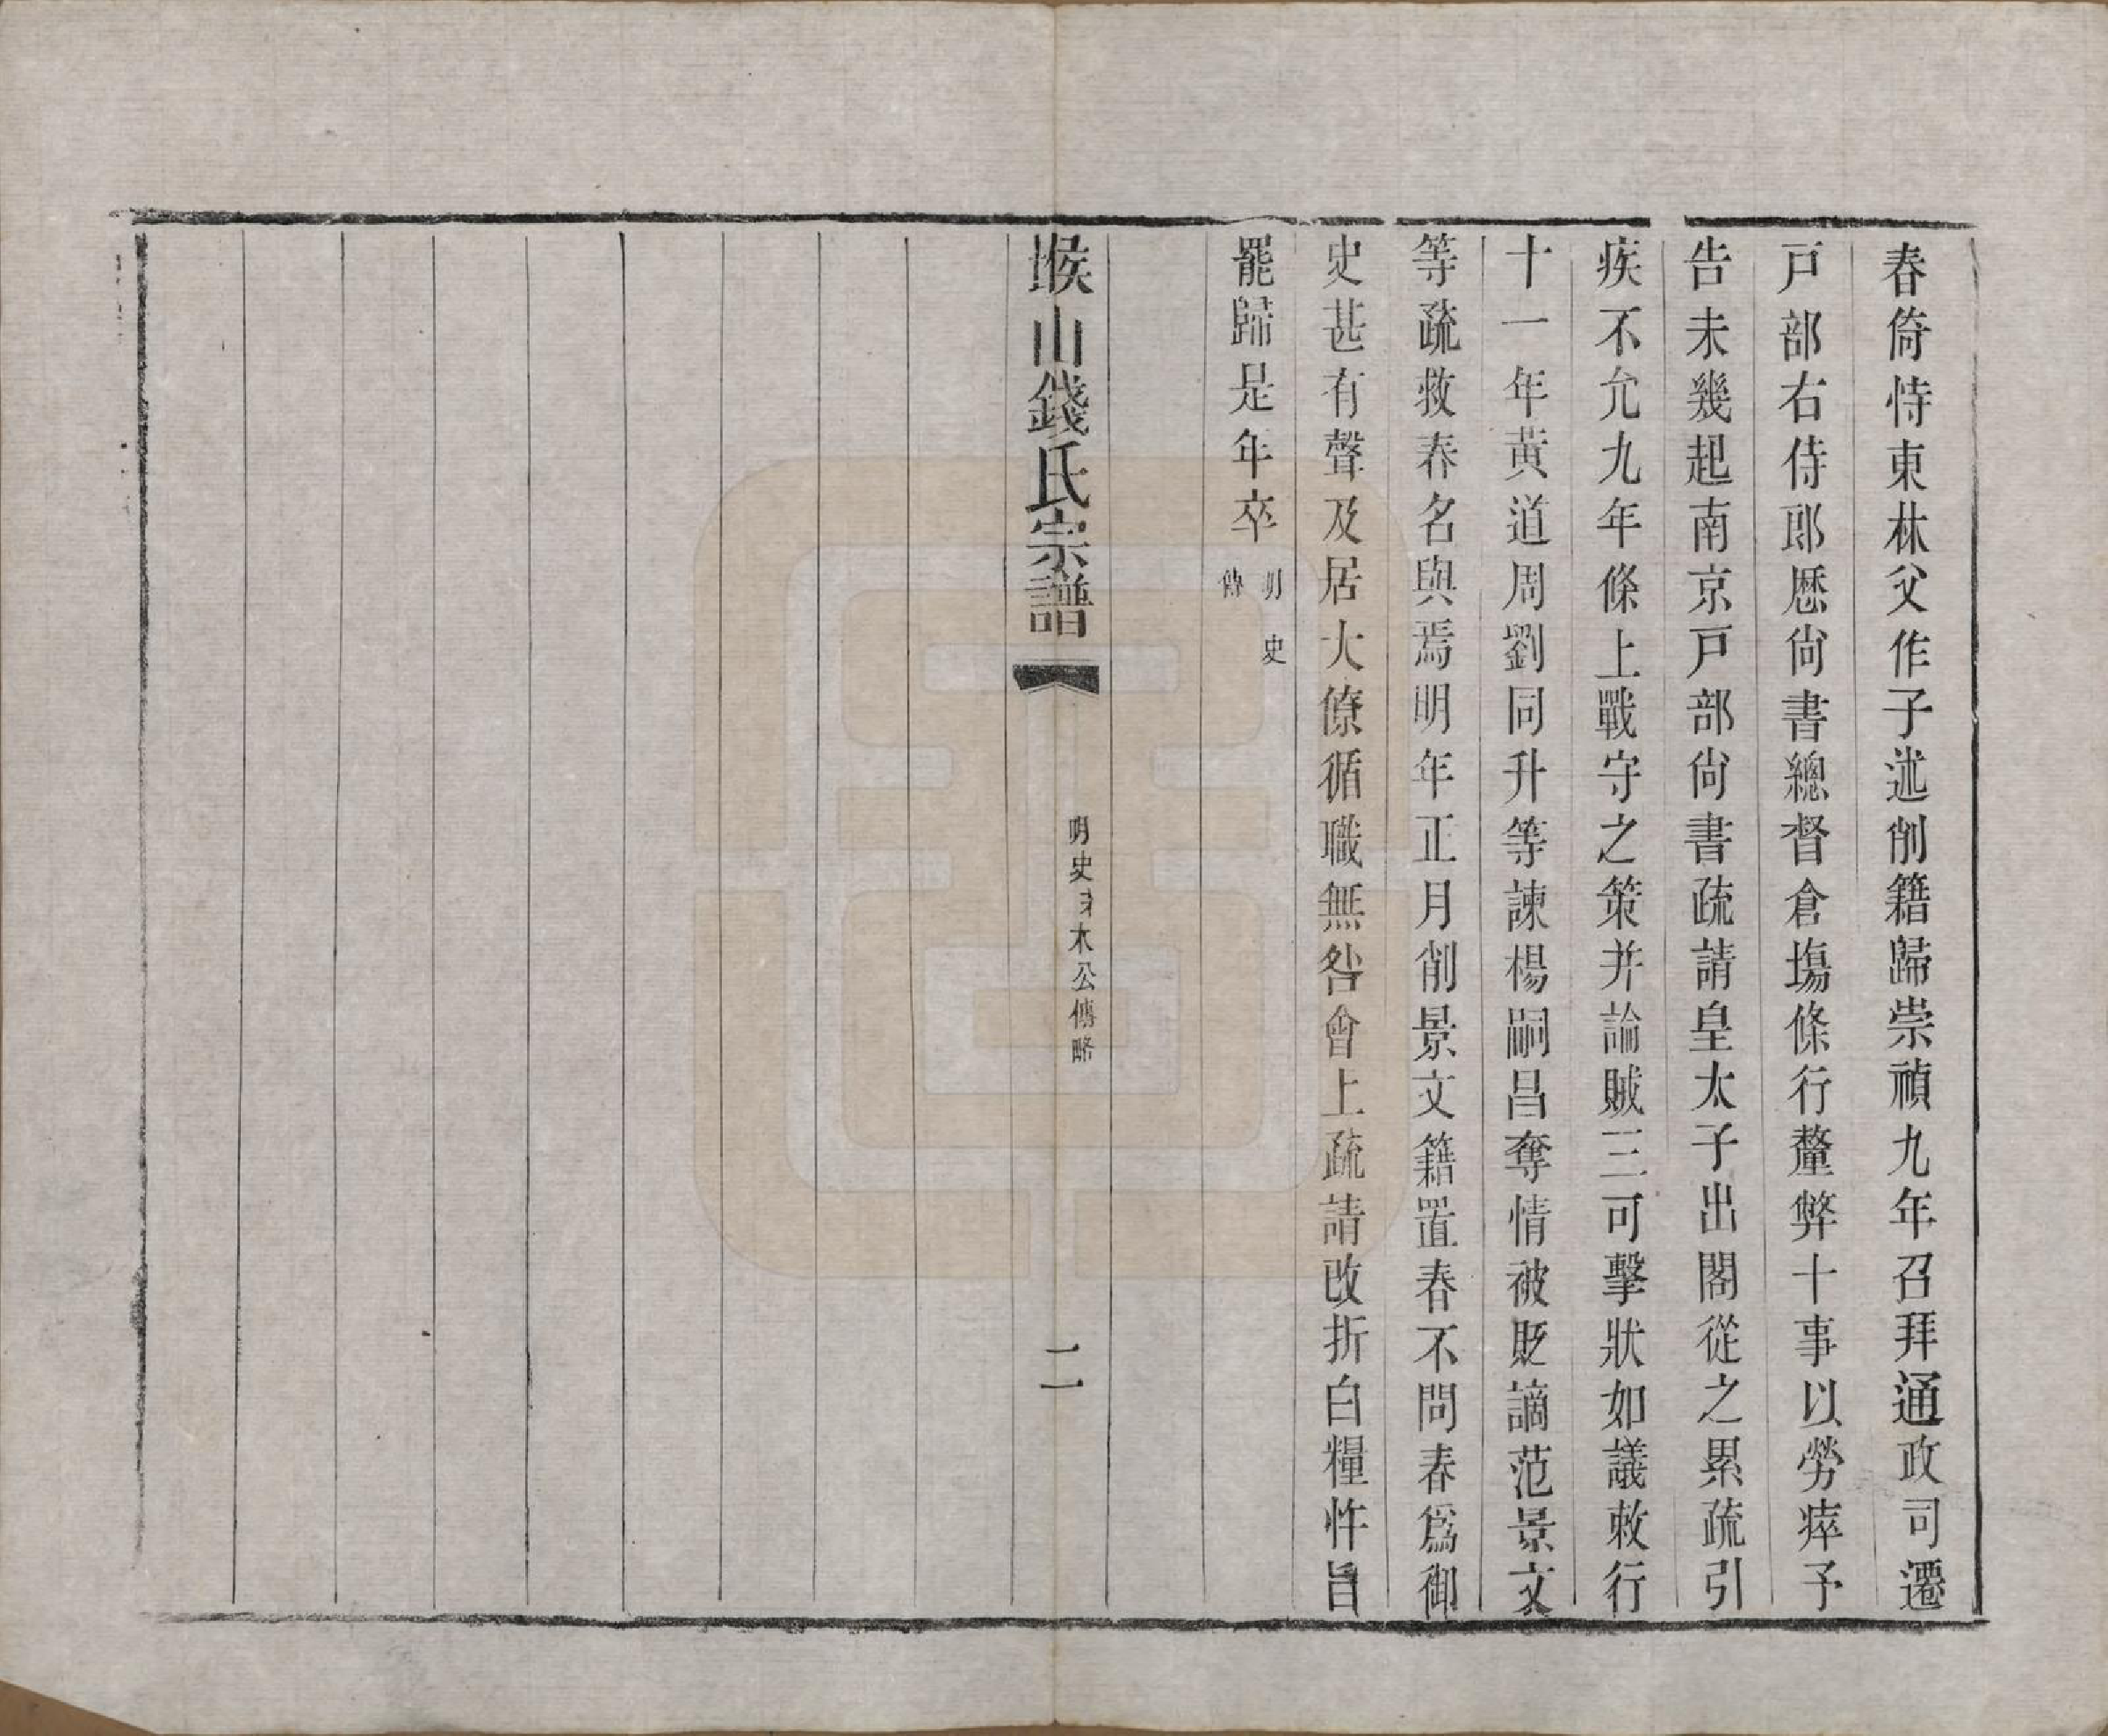 春倚恃東林父作子述削籍歸崇禎九年召拜通政司遷
戸部右侍郎厯尙書總督倉塲條行釐弊十事以勞瘁予
告未幾起南京戸部尙書疏請皇太子出閣從之累疏引
疾不允九年條上戰守之策并論賊三可擊狀如議敕行
十一年黃道周劉同升等諫楊嗣昌奪情被貶謫范景文
等疏救春名與焉明年正月削景文籍置春不問春爲御
史甚有聲及居大僚循職無咎會上疏請改折白糧忤旨
罷歸是年卒 明史
傳
堠山錢氏宗譜
明史 木公傳略
二